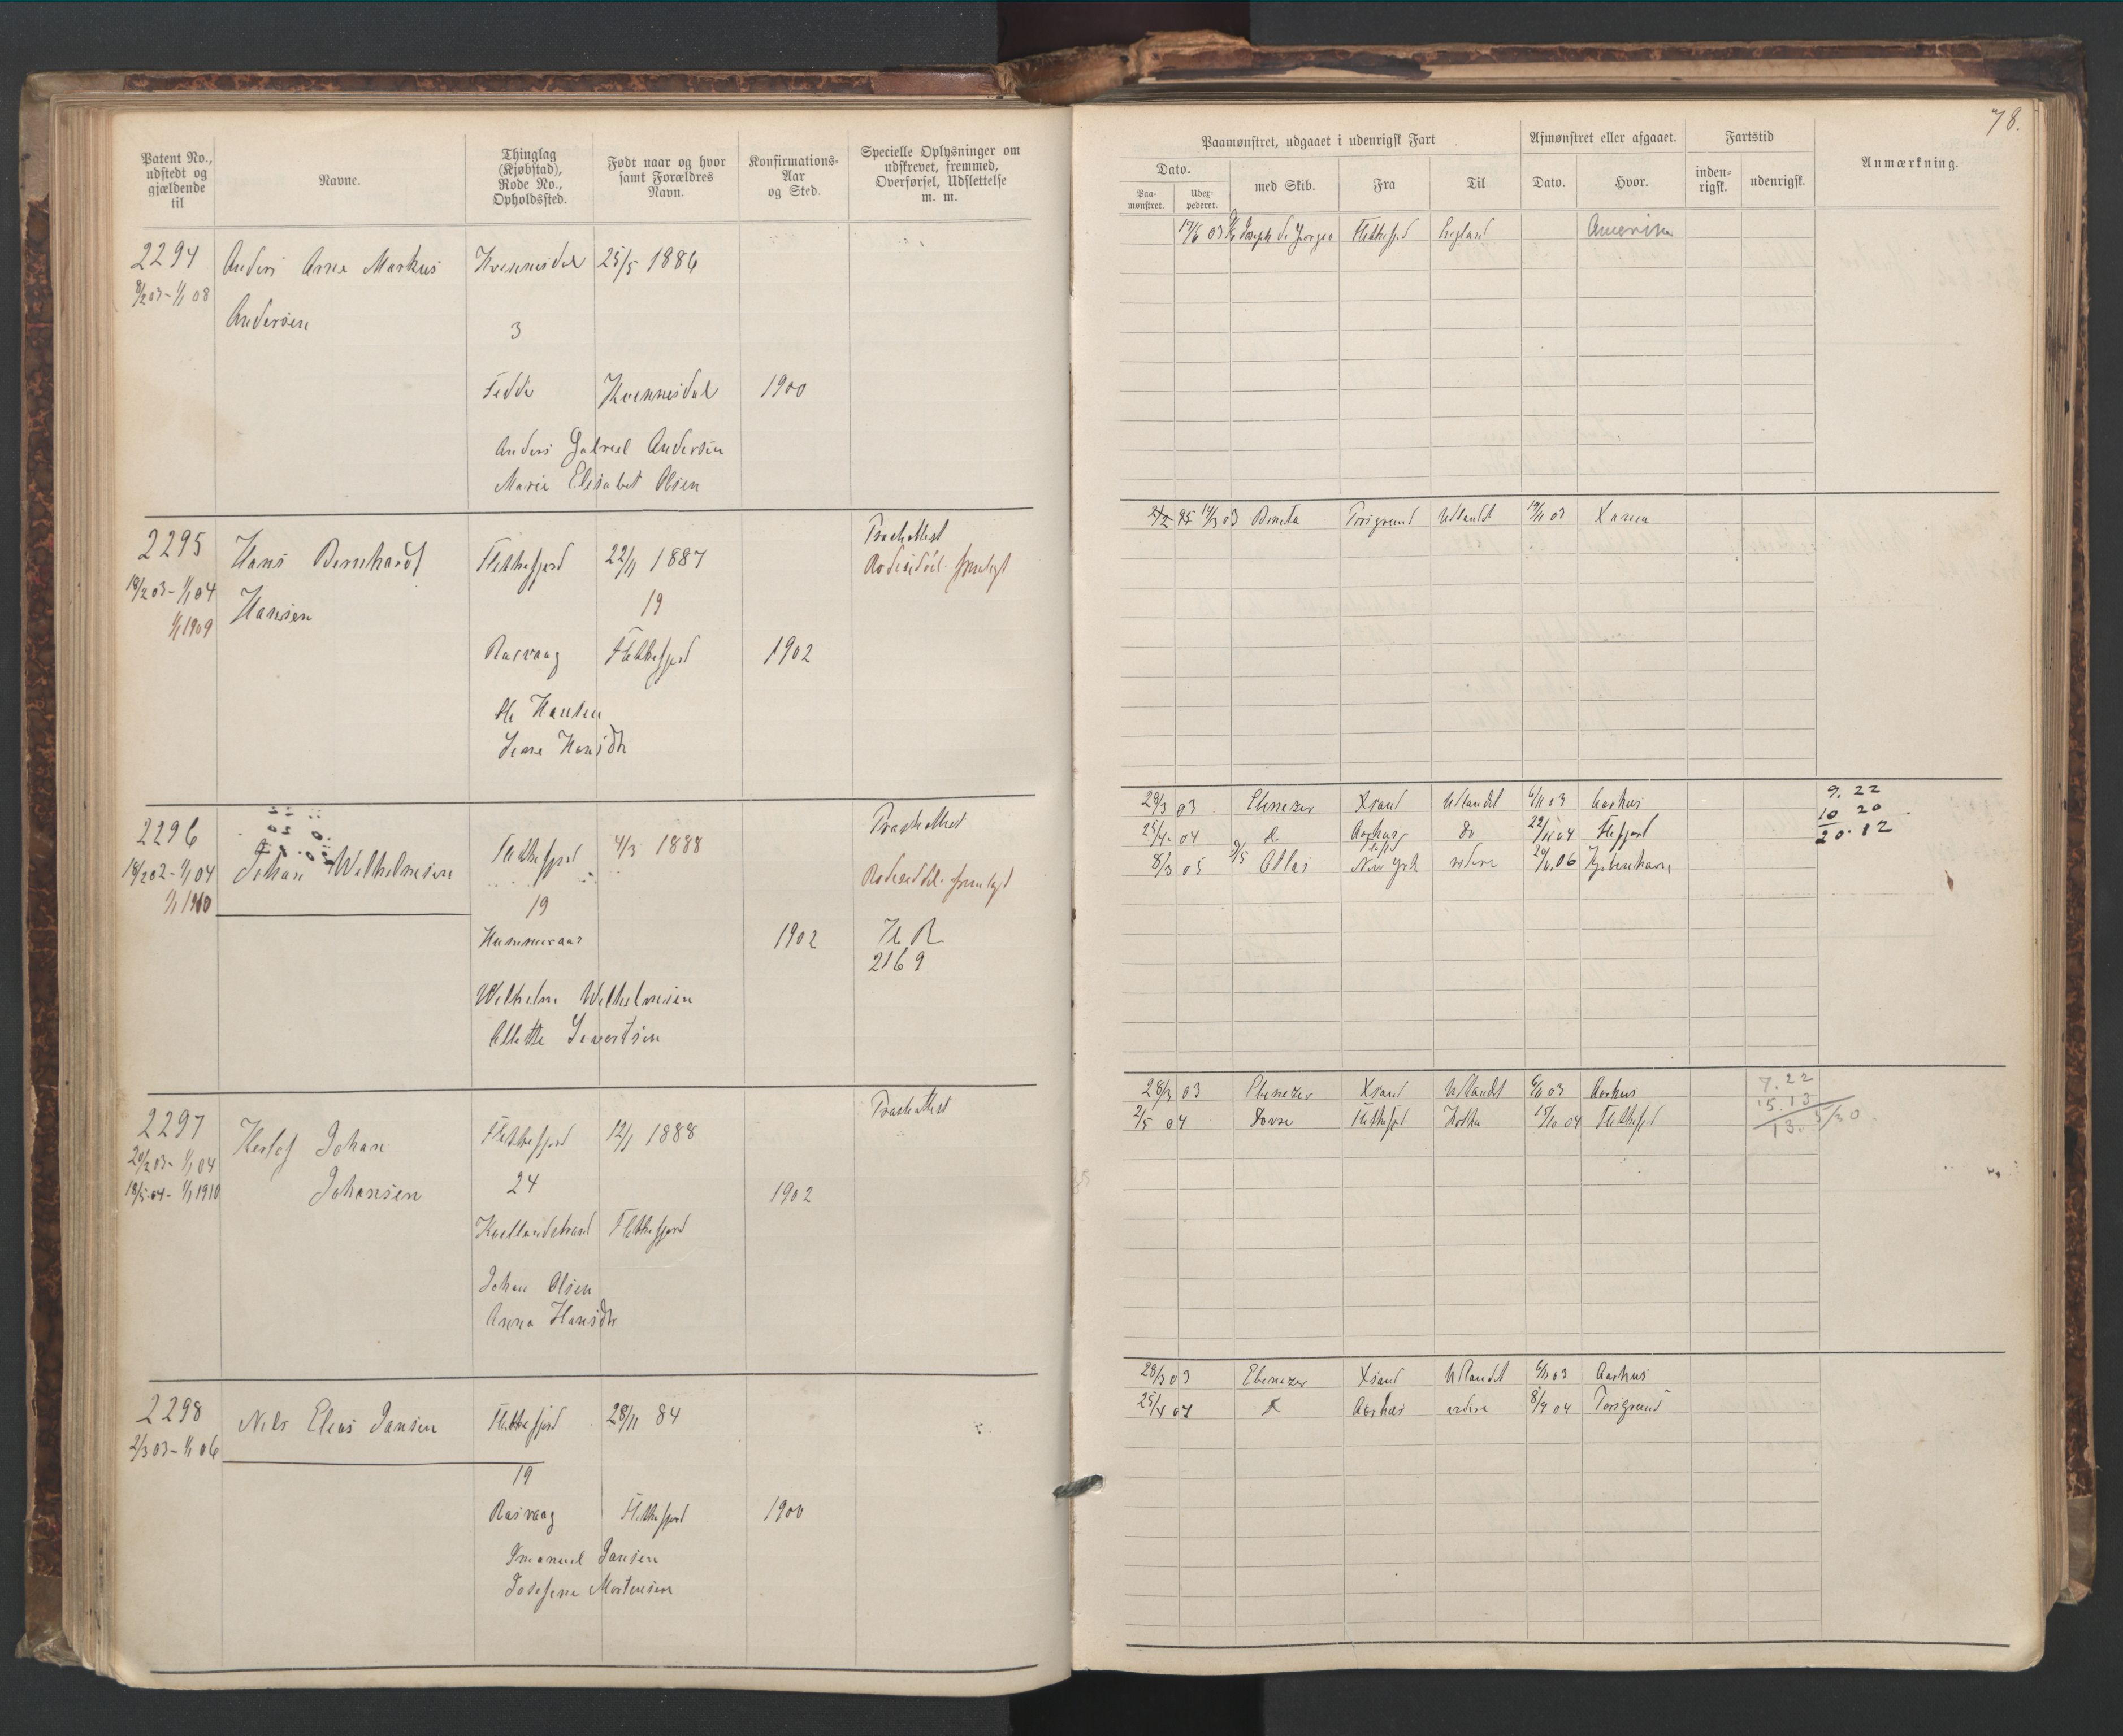 78.
Patent No., udstedt og gjældende til
Navne.
Thinglag (Kjøbstad), Rode No., Opholdssted.
Født naar og hvor samt Forældres Navn.
Konfirmations-Aar og Sted.
Specielle Oplysninger om udskrevet, fremmed, Overførsel, Udslettelse m. m.
Paamønstret, udgaaet i udenrigsk Fart
Afmønstret eller afgaaet.
Fartstid
Anmærkning.
Dato.
Paa-mønstret.
Udex-pederet.
med Skib.
Fra
Til
Dato.
Hvor.
inden-rigsk.
udenrigsk.
2294 Anders Arne Markus Kvinnesdal 25/5 1886
8/2 03 - 1/1 08
Andersen
3
Fedde Kvinnesdal 1900
Anders Gabriel Andersen
Marie Elisabet Olsen
17/6 03 Flekkefj.d England Amerika
2295 Hans Bernhard Flekkefjord 22/11 1887
19/2 03 - 1/1 04 Hansen 19
1/1 1909
Rasvaag Flekkefjord 1902
H. Hansen
Hansdtr
14/3 03 Porsgrund Utlandet 19/11 03
2296 Johan Wilhelmsen Flekkefjord 4/3 1888
19/2 02 - 1/1 04
1/1 1910
19
1902
2169
Wilhelm Wilhelmsen
Sivertsen
29/3 03 Ebenezer Xsand Utlandet 6/11 03 Aarhus 9. 22
25/4 04 Aarhus do 22/11 04 10 20
8/3 05 Atlas New York videre 06 Kjøbenhavn 20. 12
2297 Johan Flekkefjord 12/1 1888
20/2 03 - 1/1 04
Johansen 24
18/5 04 - 1/1 1910
1902
Flekkefjord
Johan Olsen
Anna Hansdtr
28/3 03 Ebenezer Xsand Utlandet 6/11 03 Aarhus 7. 22
2/5 04 Flekkefjd 15/10 04 Flekkefjd 15. 13
2298 Nils Elias Jansen Flekkefjord 28/11 84
2/3 03 - 1/1 06
19
Rasvaag Flekkefjord 1900
Emanuel Jansen
Josefine Mortensen
28/3 03 Ebenezer Xsand Utlandet 6/11 03 Aarhus
25/4 04 Aarhus videre 8/9 04 Porsgrund